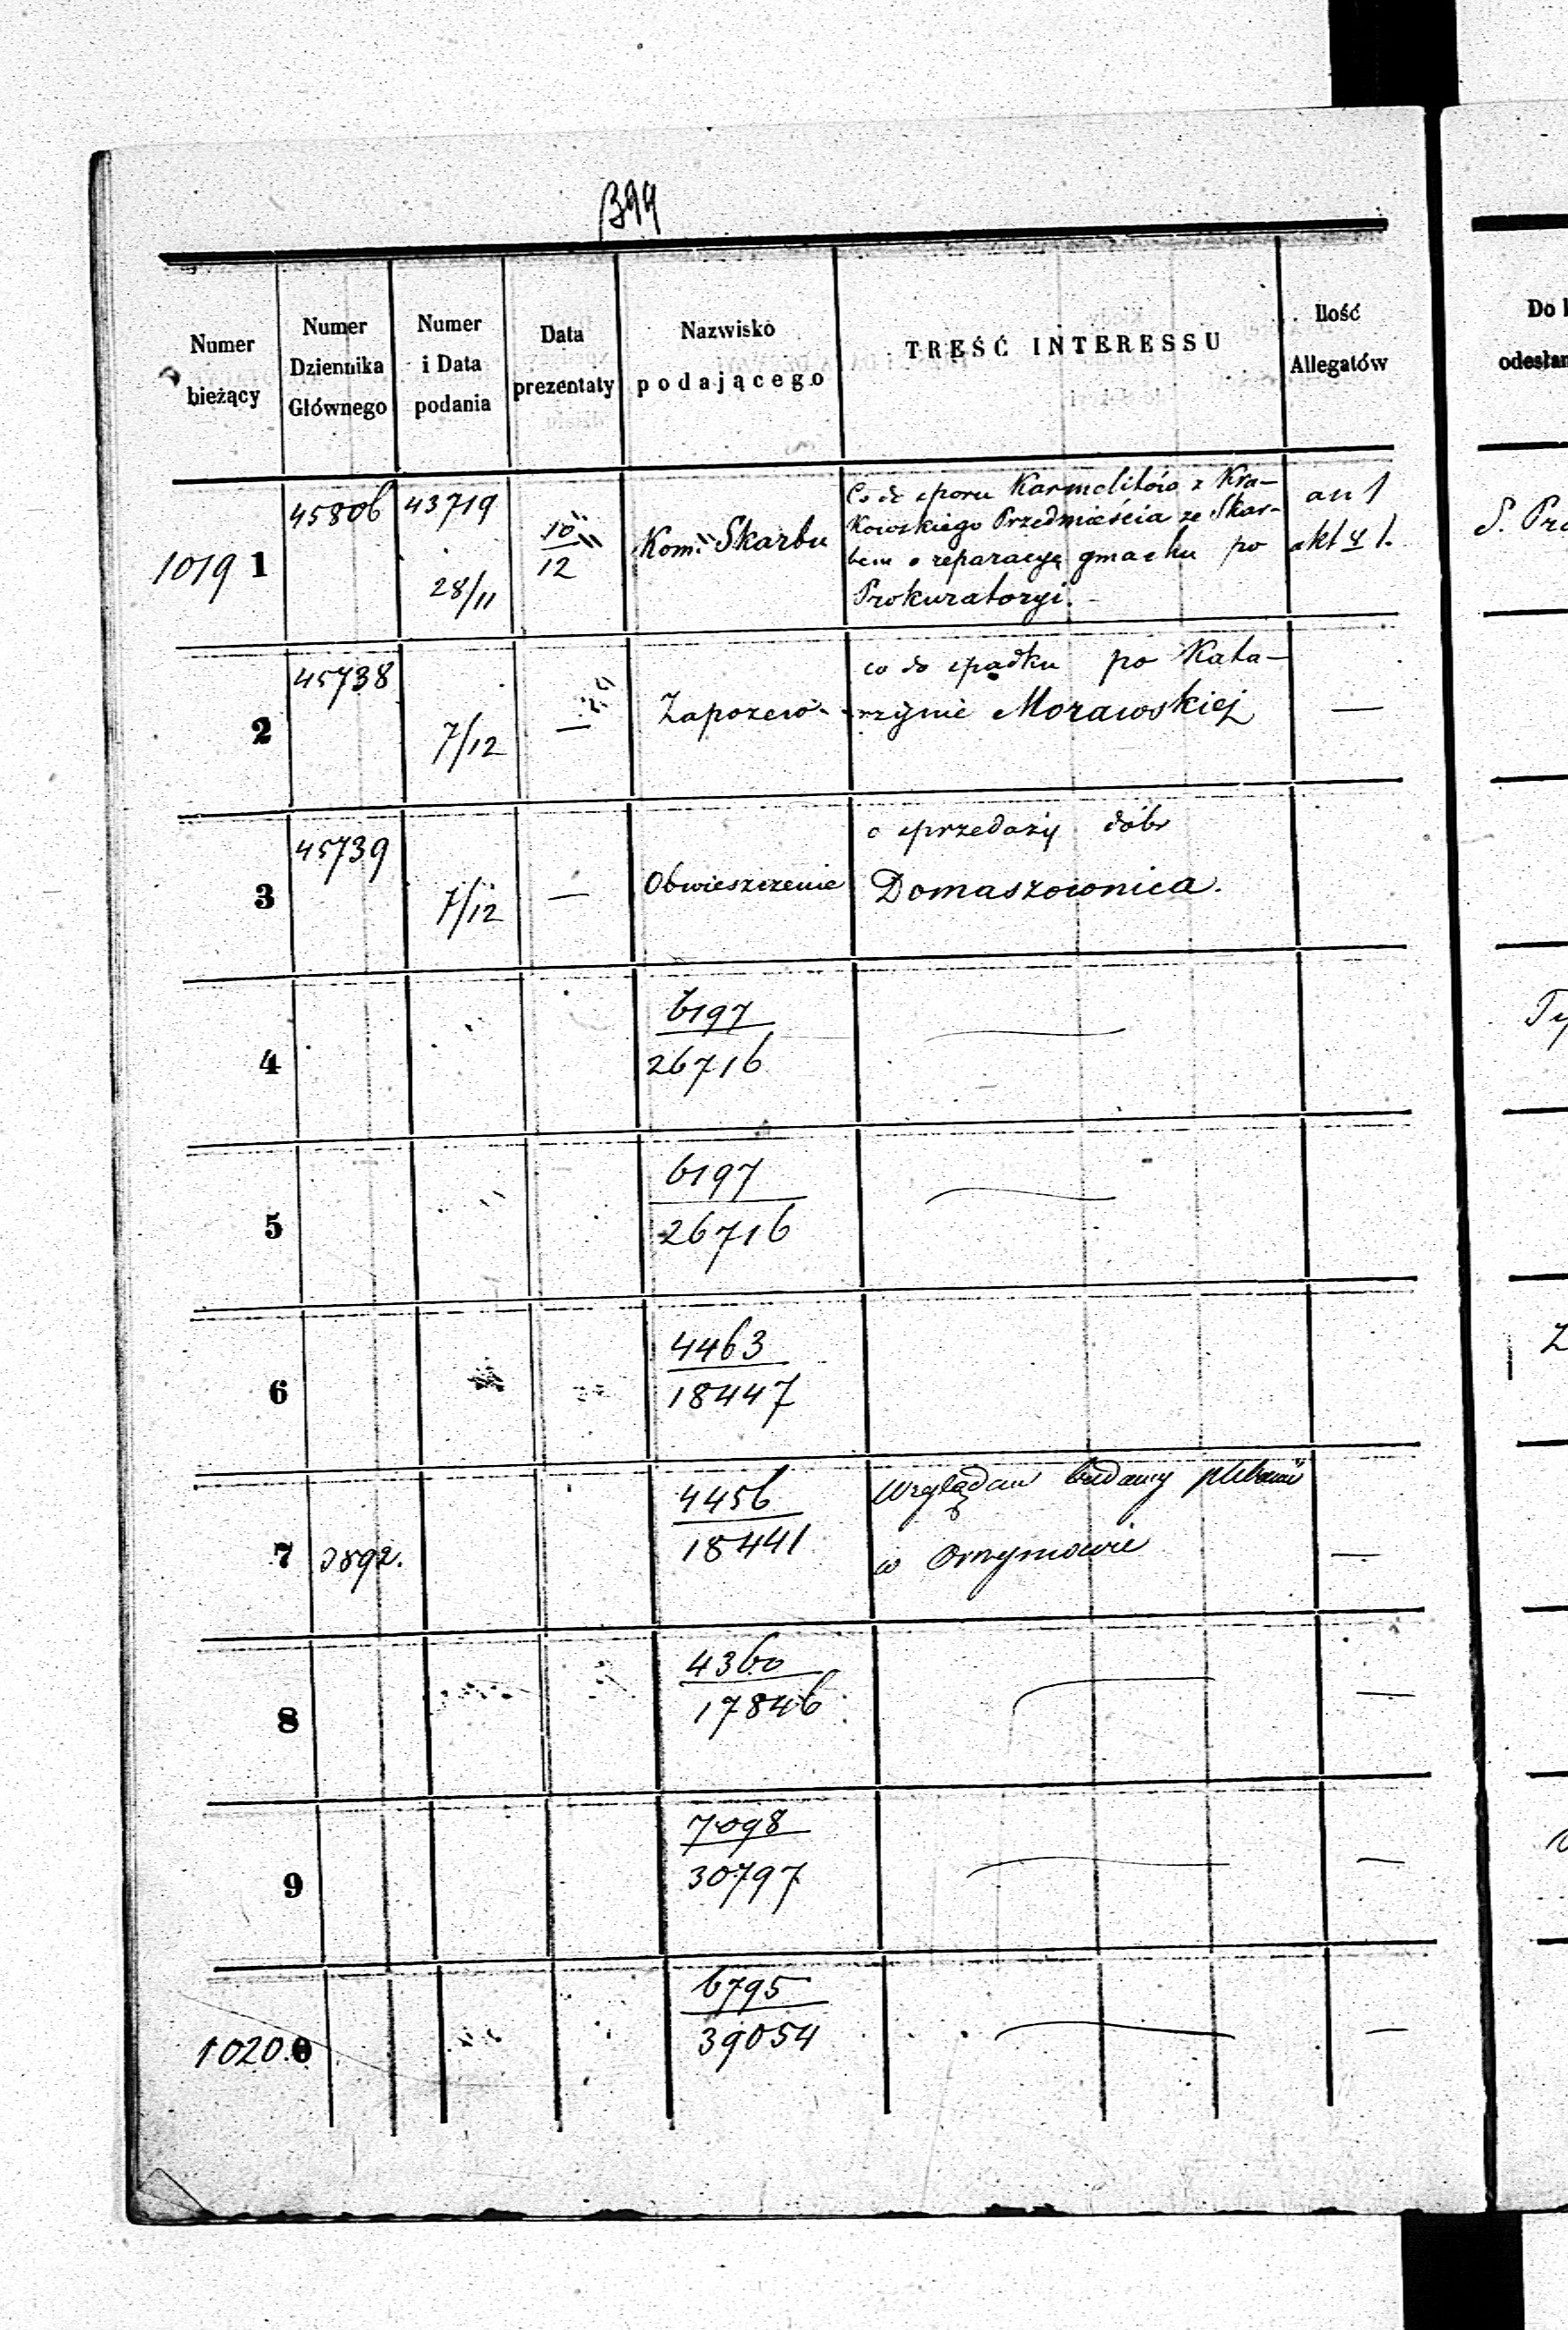 399
Numer bieżący
Numer Dziennika Głównego
Numer i Data podania
Data prezentaty
Nazwisko podającego
TREŚĆ INTERESSU
Ilość Allegatów
1019 1
45806
43719
28/11
10/12
Kom: Skarbu
Co do sporu Karmelitów z Kra-
kowskiego Przedmieścia ze Skar-
bem o reparacyę gmachu po
Prokuratoryi.
an 1
akt 1.
S.
2
45738
7/12
—
Zapozew
co do spadku po Kata-
rzynie Morawskiej
—
3
45739
7/12
—
Obwieszczenie
o sprzedaży dóbr
Domaszownica.
4
6197
26716
5
6197
26716
6
4463
18447
7
4456
18441
w
—
8
4360
17846
—
9
7098
30797
—
1020.0
6795
39054
—